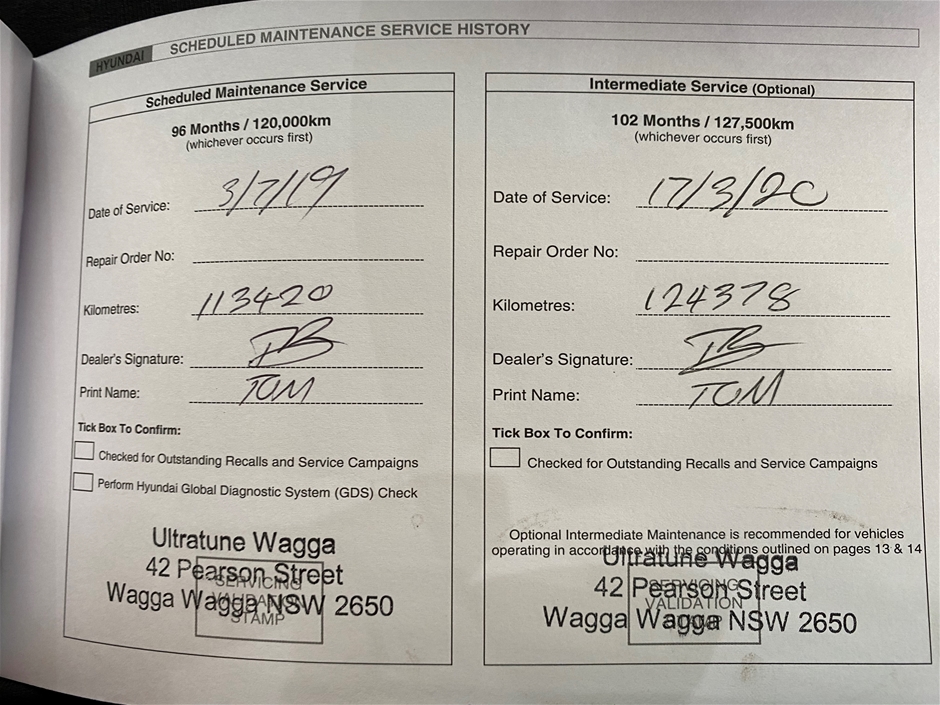 HYUNDAI SCHEDULED MAINTENANCE SERVICE HISTORY
Scheduled Maintenance Service
96 Months / 120,000km
(whichever occurs first)
Date of Service: 3/7/19
Repair Order No:
Kilometres: 113420
Dealer's Signature:
Print Name: TOM
Tick Box To Confirm:
Checked for Outstanding Recalls and Service Campaigns
Perform Hyundai Global Diagnostic System (GDS) Check
Ultratune Wagga
42 Pearson Street
SERVICING
Wagga Wagga NSW 2650
VALIDATION
STAMP
Intermediate Service (Optional)
102 Months / 127,500km
(whichever occurs first)
Date of Service: 17/3/20
Repair Order No:
Kilometres: 124378
Dealer's Signature:
Print Name: TOM
Tick Box To Confirm:
Checked for Outstanding Recalls and Service Campaigns
Optional Intermediate Maintenance is recommended for vehicles
operating in accordance with the conditions outlined on pages 13 & 14
Ultratune Wagga
42 Pearson Street
SERVICING
VALIDATION
Wagga Wagga NSW 2650